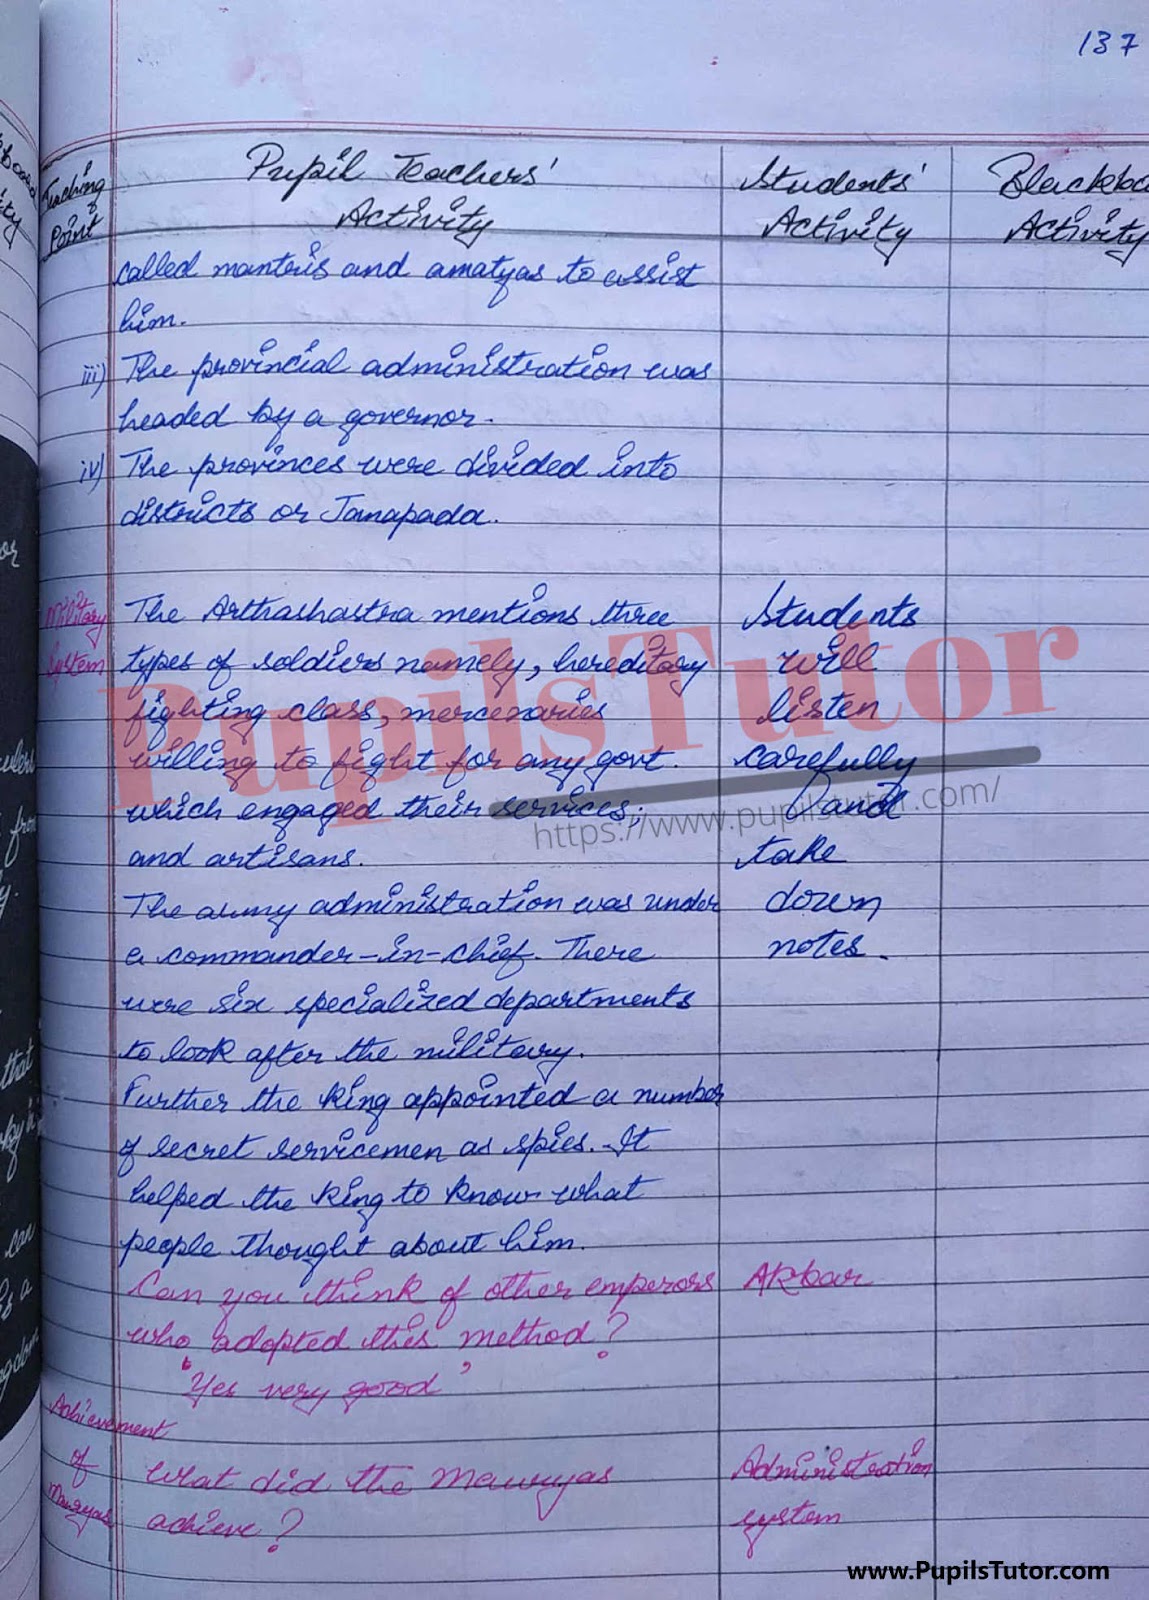 137
Teaching Point
Pupil Teachers' Activity
Students' Activity
Activity
called mantris and amatyas to assist
him.
iii) The provincial administration was
headed by a governor.
iv) The provinces were divided into
districts or Janapada.
Military System
The Arthashastra mentions three
types of soldiers namely, hereditary
fighting class, mercenaries
willing to fight for any govt.
which engaged their services;
and artisans.
The army administration was under
a commander-in-chief. There
were six specialized departments
to look after the military.
Further the king appointed a number
of secret servicemen as spies. It
helped the king to know what
people thought about him.
Students
will
listen
carefully
and
take
down
notes.
Can you think of other emperors
who adopted this method?
Akbar
"Yes very good"
Achievement
of
Mauryas
What did the Mauryas
achieve?
Administration
system
PupilsTutor
https://www.pupilstutor.com/
www.PupilsTutor.com